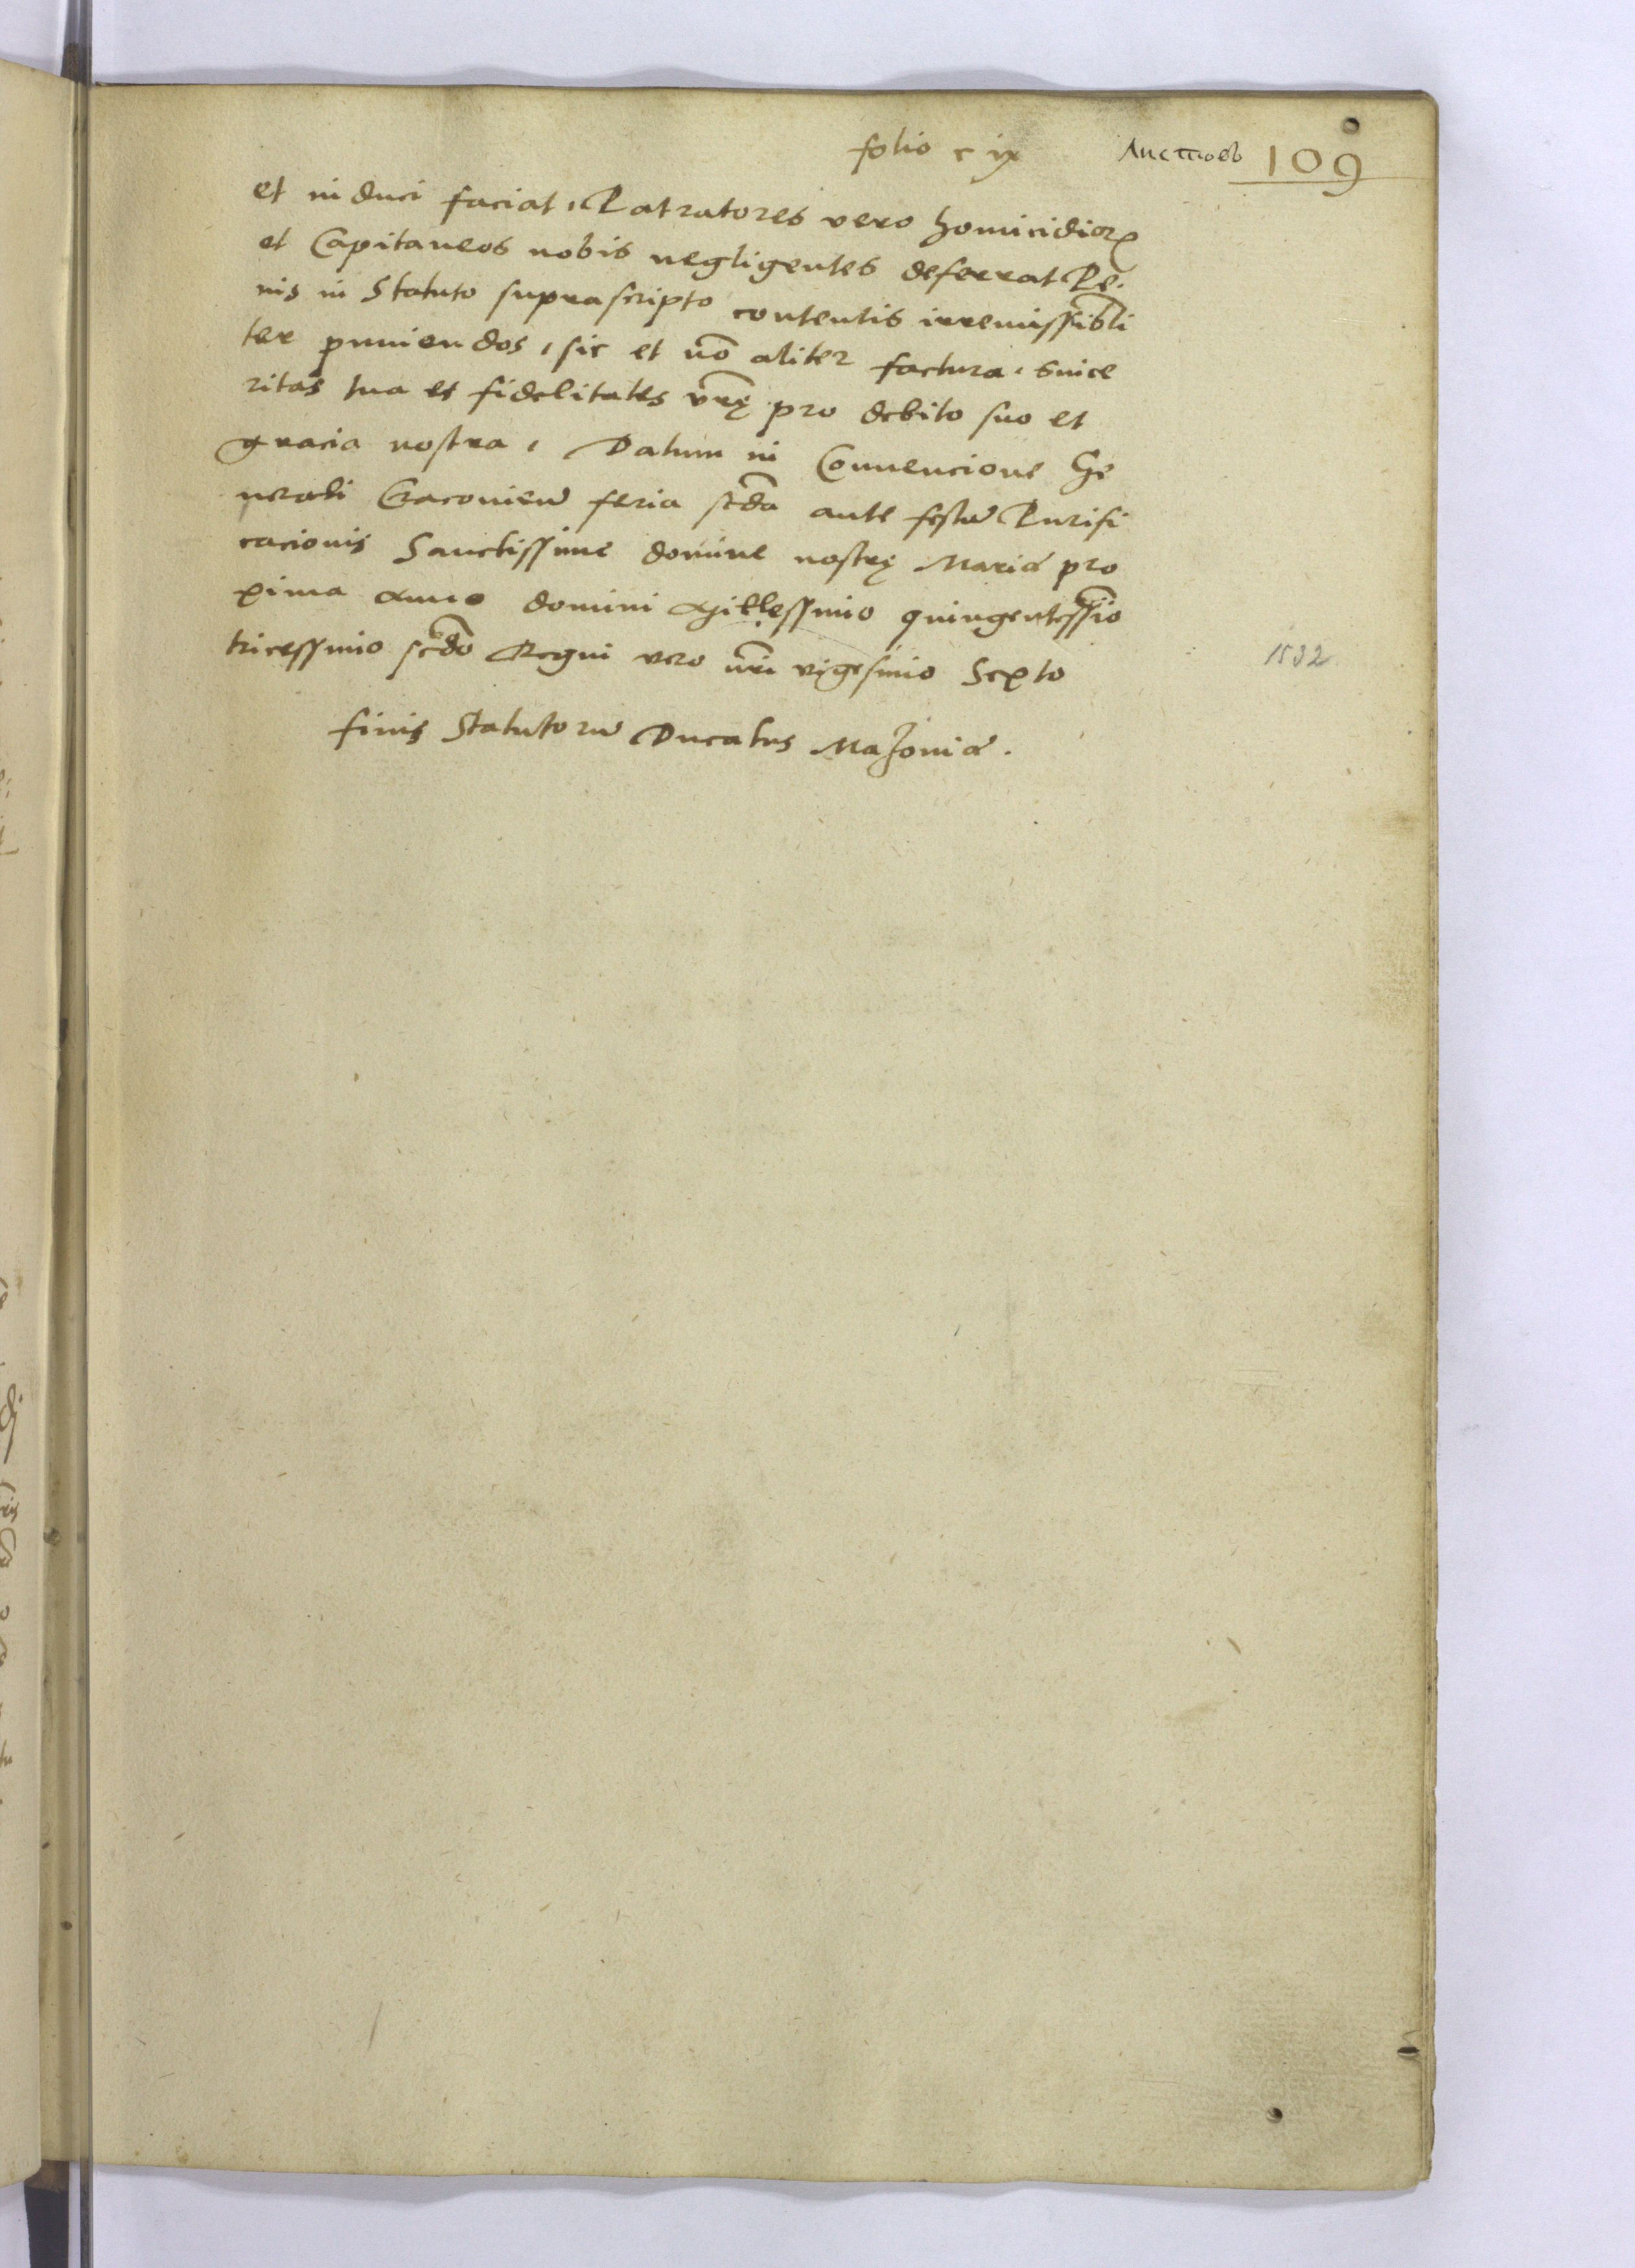 folio c ix Листовъ 109
et induci faciat, Patratores vero homicidiorꝝ
et Capitaneos nobis negligentes deferrat Pe.
nis in Statuto suprascripto contentis irremissibili
ter puniendos, sic et nō aliter factura, Since
ritas tua et fidelitates vr̄ę pro debito suo et
gracia nostra, Datum in Convencione Ge
nerali Cracovien̄ feria scd̄a ante festū Purifi
cacionis Sanctissime domine nostrę Mariæ pro
xima Anno domini Millessimo quingentessīo
tricessimo scd̄o Regni vero nr̄i vigesimo Sexto
1532
finis Statutorū Ducatus Mazoviæ.